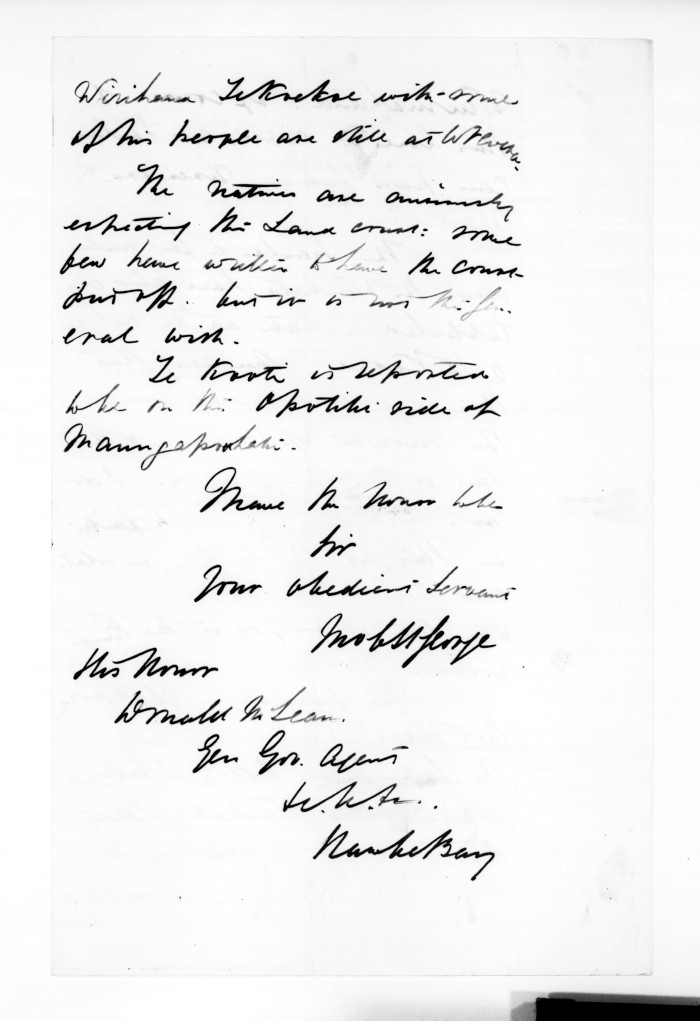 Wirihana Te Koekoe with some
of his people are still at
The natives are anxiously
expecting the Land court: some
few have written to have the court
put off. but it is not the gen
eral wish.
Te Kooti is reported
to be on the Opotiki side of
Maungapowhatu.
I have the honor to be
Sir
Your obedient Servant
St George
His Honor
Donald McLean.
Gen Gov. Agent
&c. &c. &c.
Hawke Bay